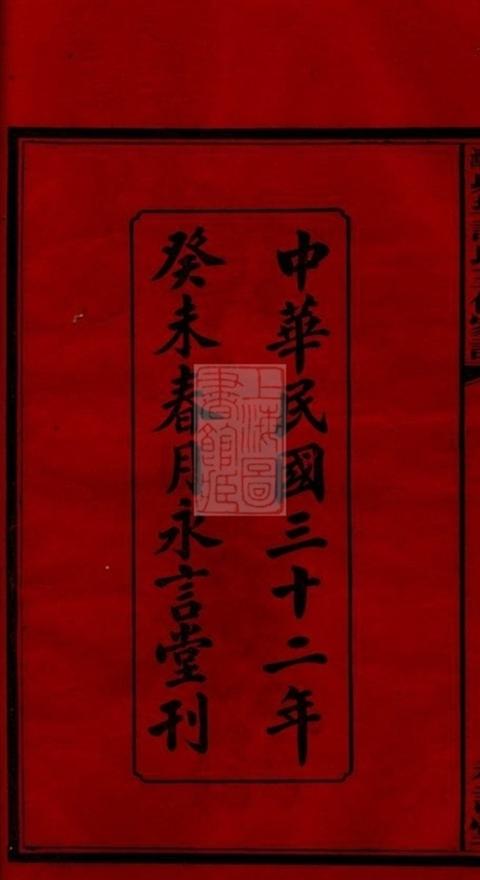 中華民國三十二年
癸未春月永言堂刊
上海圖書館藏